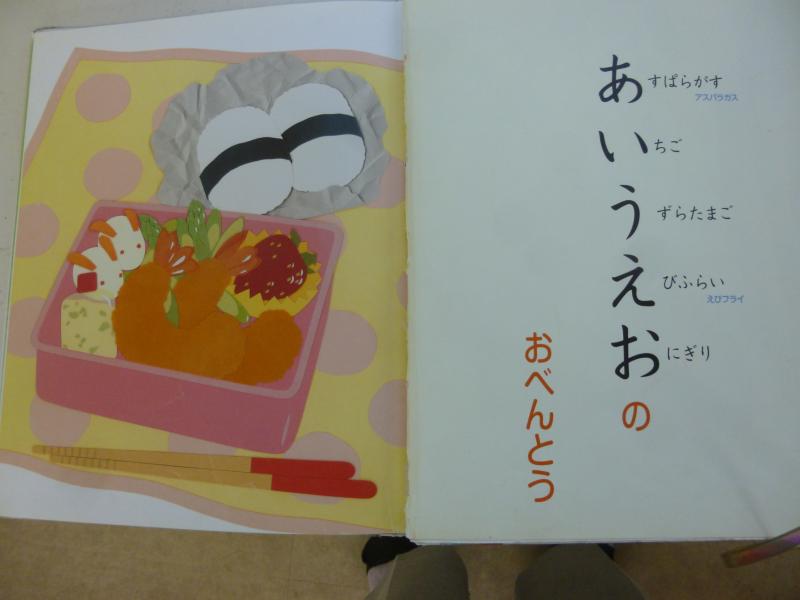 あすぱらがす
アスパラガス
いちご
うずらたまご
えびふらい
えびフライ
おにぎり
の
おべんとう